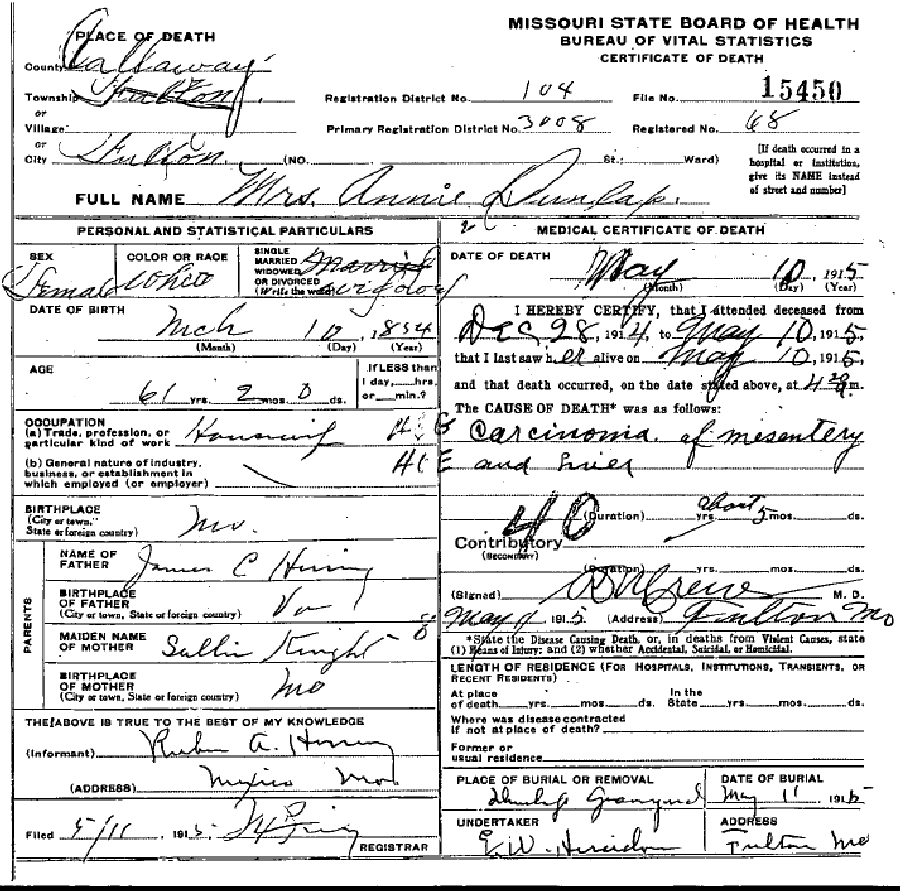 MISSOURI STATE BOARD OF HEALTH
BUREAU OF VITAL STATISTICS
CERTIFICATE OF DEATH
PLACE OF DEATH
County Callaway
Township Fulton Registration District No. 104 File No. 15450
or
Village Primary Registration District No. 3008 Registered No. 68
or
City Fulton (NO. St.; Ward)
[If death occurred in a hospital or institution, give its NAME instead of street and number]
FULL NAME Mrs. Annie Dunlap
PERSONAL AND STATISTICAL PARTICULARS
SEX Female
COLOR OR RACE White
SINGLE MARRIED WIDOWED OR DIVORCED (Write the word) Married
DATE OF BIRTH Mch 10, 1854
(Month) (Day) (Year)
AGE 61 yrs. 2 mos. 0 ds.
If LESS than 1 day, hrs. or min.?
OCCUPATION
(a) Trade, profession, or particular kind of work Housewife
(b) General nature of industry, business, or establishment in which employed (or employer)
BIRTHPLACE
(City or town, State or foreign country) Mo.
PARENTS
NAME OF FATHER James C
BIRTHPLACE OF FATHER
(City or town, State or foreign country) Va
MAIDEN NAME OF MOTHER Sallie Knight
BIRTHPLACE OF MOTHER
(City or town, State or foreign country) Mo
THE ABOVE IS TRUE TO THE BEST OF MY KNOWLEDGE
(Informant) A.
(ADDRESS) Mexico Mo
Filed 5/11, 1915
REGISTRAR
2
MEDICAL CERTIFICATE OF DEATH
DATE OF DEATH May 10, 1915
(Month) (Day) (Year)
I HEREBY CERTIFY, that I attended deceased from
Dec 28, 1914, to May 10, 1915,
that I last saw her alive on May 10, 1915,
and that death occurred, on the date stated above, at m.
The CAUSE OF DEATH* was as follows:
Carcinoma of mesentery
and liver
(Duration) yrs. about 5 mos. ds.
40
Contributory
(SECONDARY)
(Duration) yrs. mos. ds.
(Signed) M. D.
May 1915. (Address) Fulton Mo
*State the Disease Causing Death, or, in deaths from Violent Causes, state
(1) Means of Injury; and (2) whether Accidental, Suicidal, or Homicidal.
LENGTH OF RESIDENCE (FOR HOSPITALS, INSTITUTIONS, TRANSIENTS, OR RECENT RESIDENTS)
At place of death yrs. mos. ds. In the State yrs. mos. ds.
Where was disease contracted if not at place of death?
Former or usual residence
PLACE OF BURIAL OR REMOVAL Dunlap Graveyard
DATE OF BURIAL May 11 1915
UNDERTAKER E.W.
ADDRESS Fulton Mo